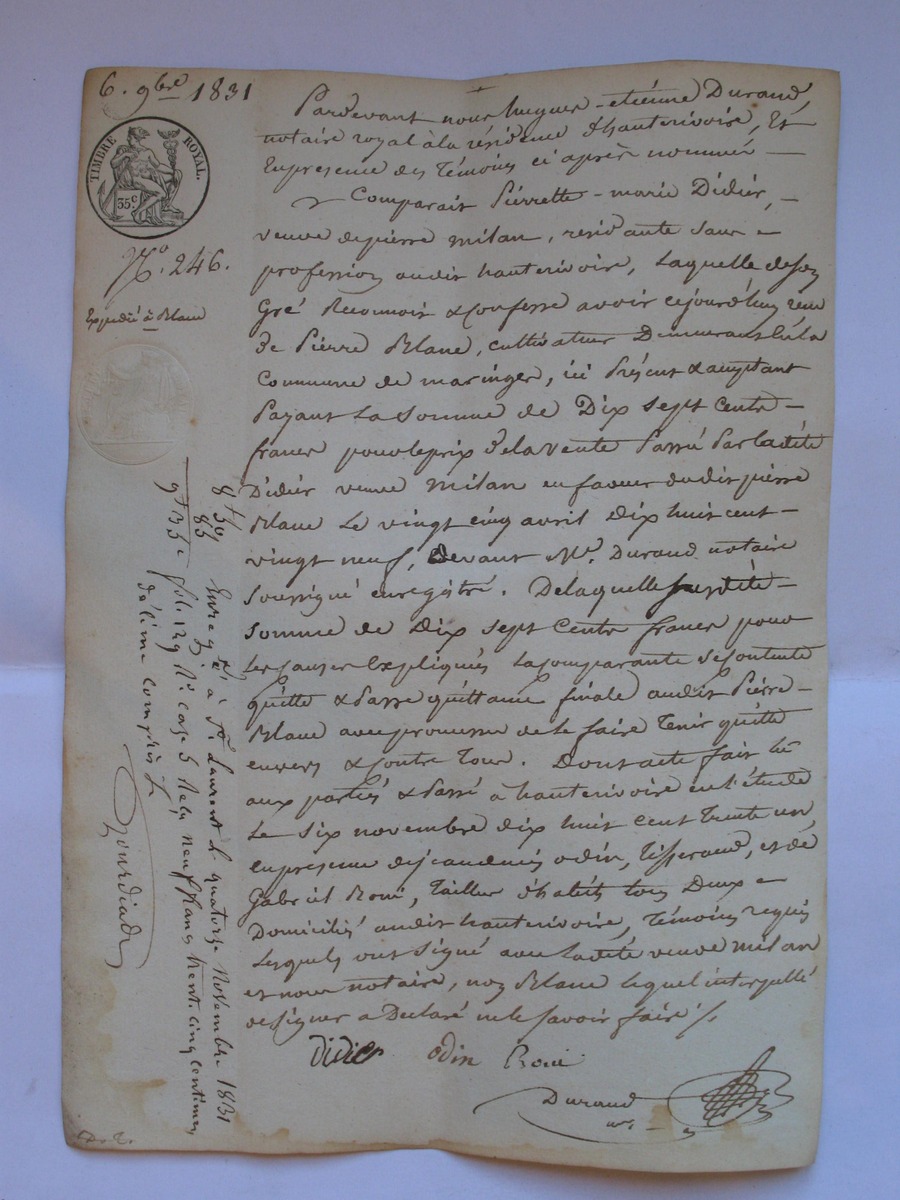 6. 9bre 1831
TIMBRE ROYAL.
35c
No. 246.
Expédié à Blanc
Pardevant nous hugues-etiénne Durand,
notaire royal à la résidence d'hauterivoire, Et
En presence des Témoins ci après nommés —
Comparait Piérrette-marie Didiér, —
veuve de pierre milan, residante sans —
profession audit hauterivoire, Laquelle de son
Gré Reconnoit & confesse avoir cejourd'huy recu
De Piérre Blanc, cultivateur Demeurant en la
Commune de maringes, ici Présent & acceptant
Payant La somme de Dix sept Cents —
francs pour le prix De la Vente Passée Par ladite
Didiér veuve milan en faveur dudit pierre
Blanc Le vingt cinq avril Dix huit cent —
vingt neuf, devant Me. Durand notaire
Soussigné enregistré. De laquelle susdite —
Somme de Dix sept Cents francs pour
Les causes Expliquées La comparante se contente
quitte & Passe quittance finale audit Piérre —
Blanc avec promesse de le faire Tenir quitte
envers & contre Tous. Dont acte fait lu
aux parties & Passé à hauterivoire en l'étude
Le six novembre dix huit cent trente un,
en presence de jean denis odin, Tisserand, et de
Gabriel Roni, Tailleur d'habits tous Deux —
Domiciliés audit hauterivoire, Témoins requis
Lesquels ont signé avec ladite veuve milan
et nous notaire, non Blanc lequel interpellé
de signer a Declaré ne le savoir faire ./.
didier odin Roni
Durand
8f 50
85
9f 35c
Enregté à St. Laurent le quatorze Novembre 1831
fol. 129 Ro. case 5 Reçu neuf francs trente cinq centimes
décime compris